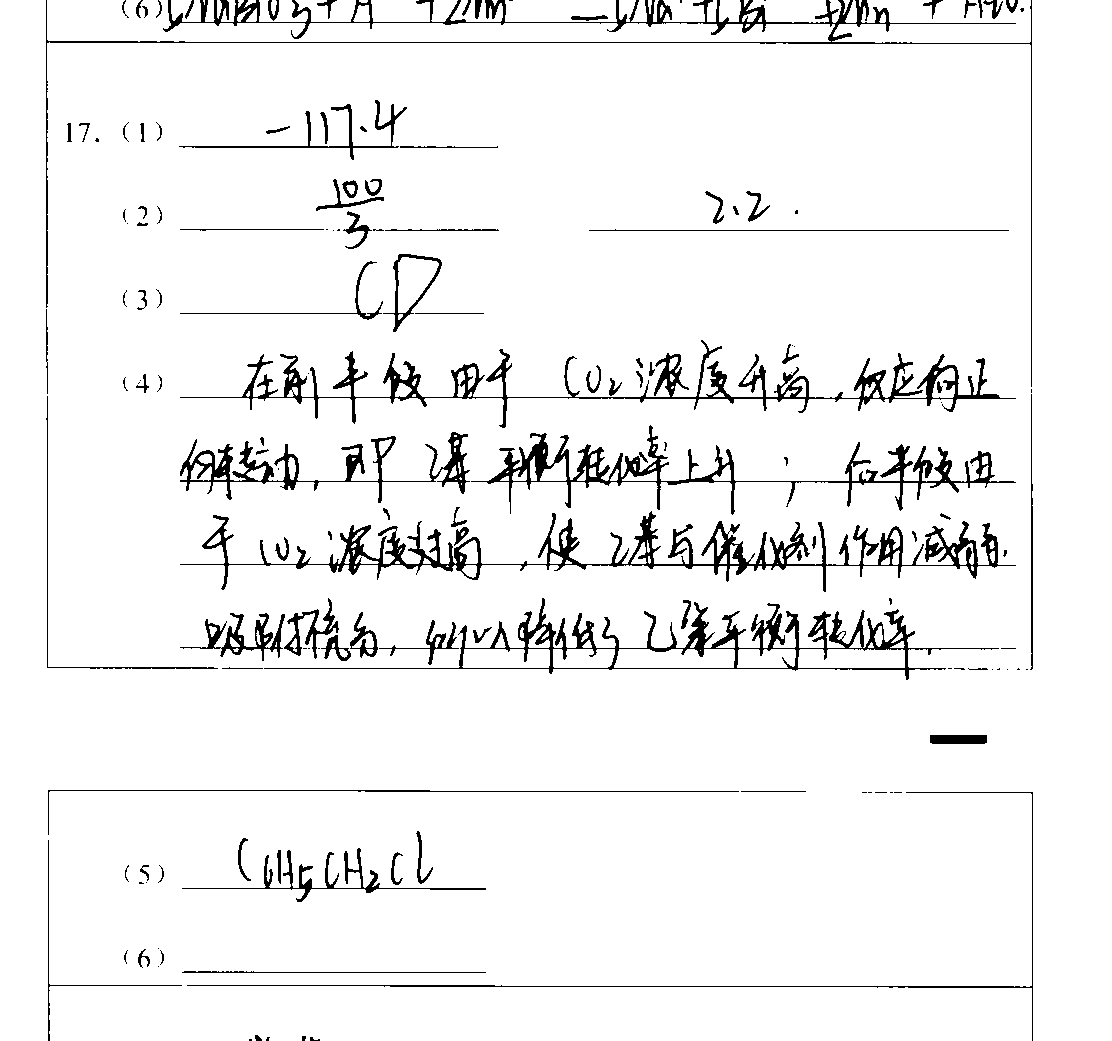 (6)
17. (1) -117.4
(2) 100/3 2.2.
(3) CD
(4) 在前半段 由于 CO₂浓度升高,反应向正
向移动,即 乙苯 平衡转化率上升 ; 后半段由
于 CO₂浓度过高 ,使 乙苯与催化剂作用减弱.
吸附 ,所以降低了 乙苯平衡转化率.
(5) C₆H₅CH₂Cl
(6)